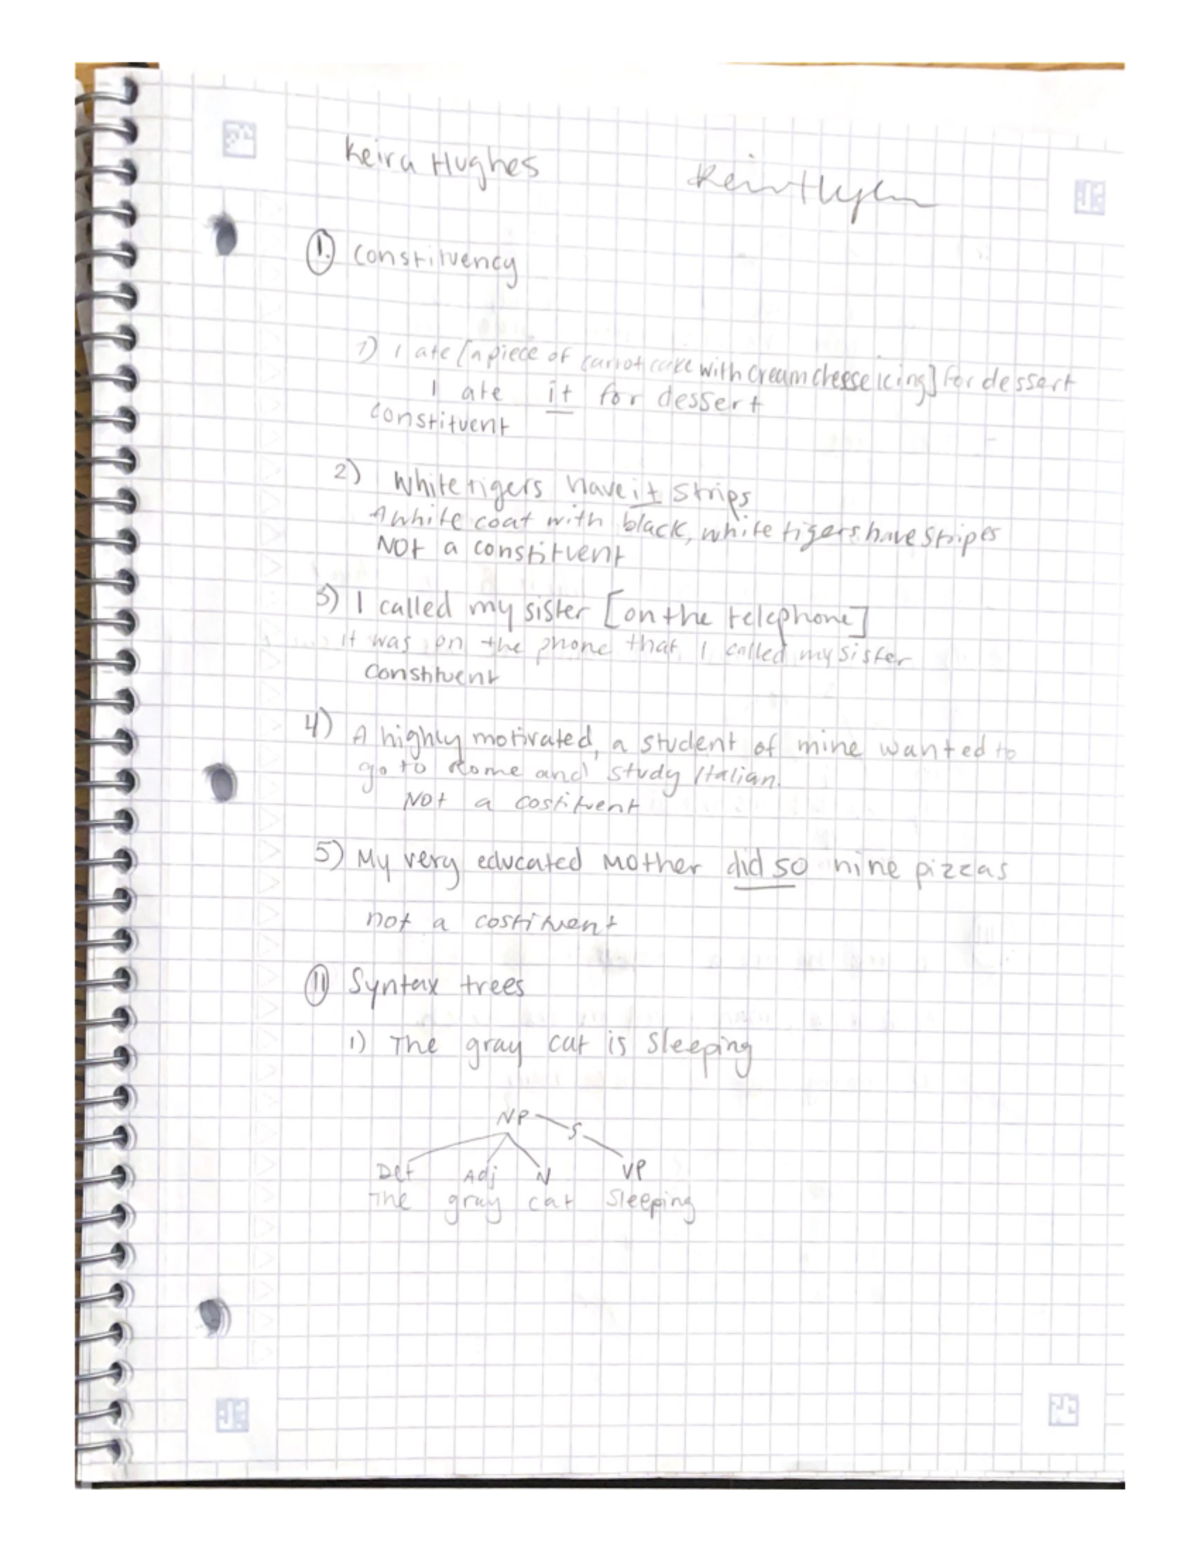 Keira Hughes
I. Constituency
1) I ate [a piece of carrot cake with cream cheese icing] for dessert
I ate it for dessert
constituent
2) White tigers have it strips
A white coat with black, white tigers have stripes
Not a constituent
3) I called my sister [on the telephone]
it was on the phone that I called my sister
Constituent
4) A highly motivated, a student of mine wanted to
go to Rome and study Italian.
Not a costituent
5) My very educated mother did so nine pizzas
not a costituent
II Syntax trees
1) The gray cat is sleeping
NP S
Det Adj N VP
The gray cat sleeping